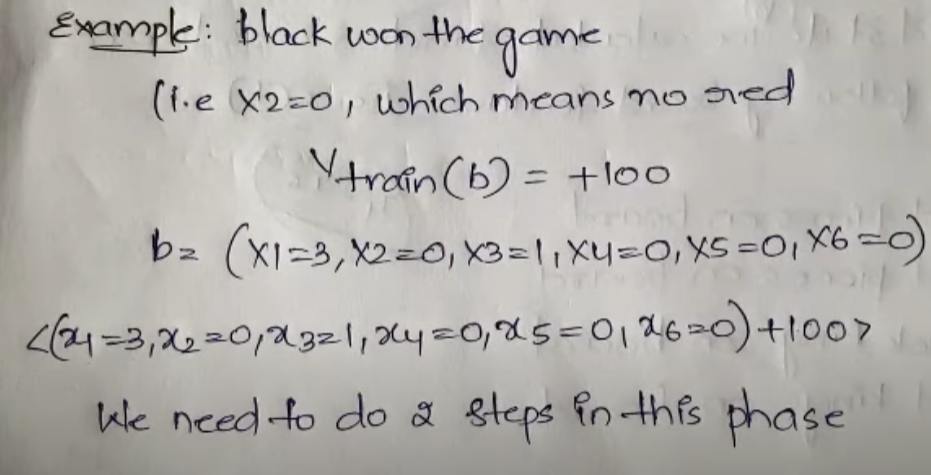 Example: black won the game
(i.e X2=0, which means no red
Vtrain(b) = +100
b= (X1=3, X2=0, X3=1, X4=0, X5=0, X6=0)
<(x1=3, x2=0, x3=1, x4=0, x5=0, x6=0)+100>
We need to do 2 steps in this phase